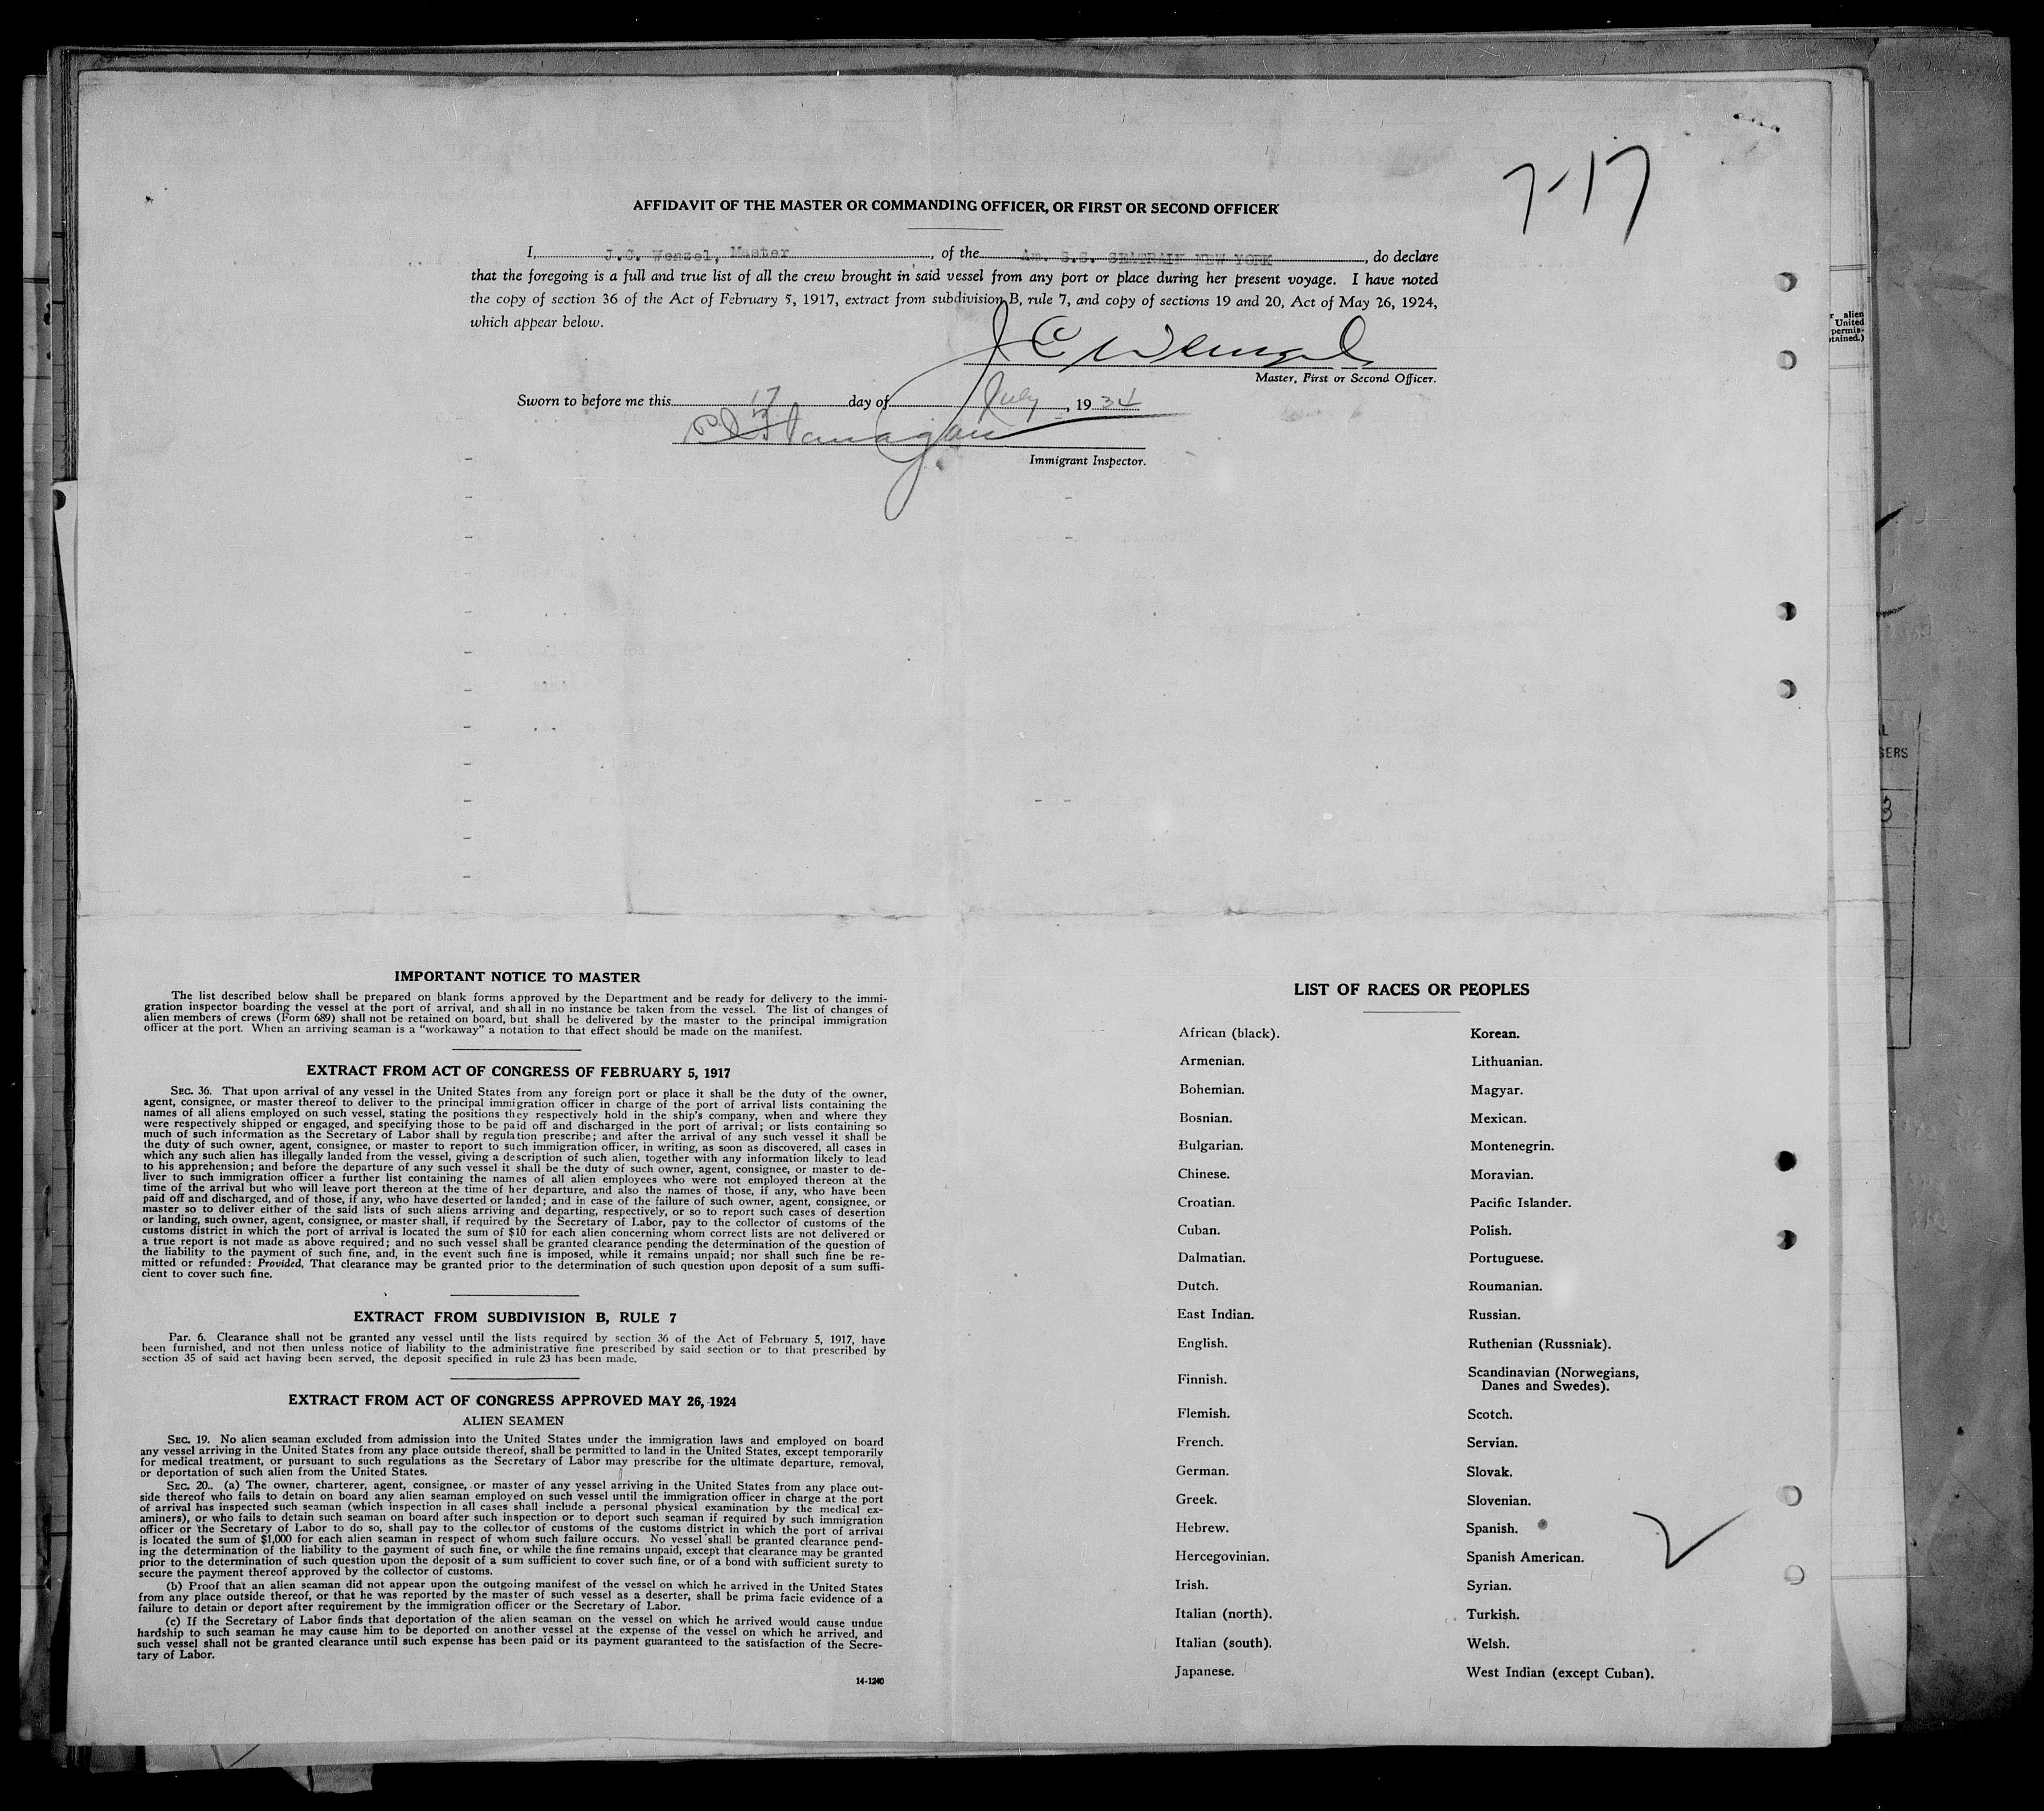 7-17
AFFIDAVIT OF THE MASTER OR COMMANDING OFFICER, OR FIRST OR SECOND OFFICER
I, J.C. Wenzel, Master, of the Am. S.S. SEATRAIN NEW YORK, do declare
that the foregoing is a full and true list of all the crew brought in said vessel from any port or place during her present voyage. I have noted
the copy of section 36 of the Act of February 5, 1917, extract from subdivision B, rule 7, and copy of sections 19 and 20, Act of May 26, 1924,
which appear below.
J C Wenzel
Master, First or Second Officer.
Sworn to before me this 17 day of July, 1934
Flanagan
Immigrant Inspector.
r alien
United
permis-
tained.)
L
GERS
3
IMPORTANT NOTICE TO MASTER
The list described below shall be prepared on blank forms approved by the Department and be ready for delivery to the immi-
gration inspector boarding the vessel at the port of arrival, and shall in no instance be taken from the vessel. The list of changes of
alien members of crews (Form 689) shall not be retained on board, but shall be delivered by the master to the principal immigration
officer at the port. When an arriving seaman is a "workaway" a notation to that effect should be made on the manifest.
EXTRACT FROM ACT OF CONGRESS OF FEBRUARY 5, 1917
SEC. 36. That upon arrival of any vessel in the United States from any foreign port or place it shall be the duty of the owner,
agent, consignee, or master thereof to deliver to the principal immigration officer in charge of the port of arrival lists containing the
names of all aliens employed on such vessel, stating the positions they respectively hold in the ship's company, when and where they
were respectively shipped or engaged, and specifying those to be paid off and discharged in the port of arrival; or lists containing so
much of such information as the Secretary of Labor shall by regulation prescribe; and after the arrival of any such vessel it shall be
the duty of such owner, agent, consignee, or master to report to such immigration officer, in writing, as soon as discovered, all cases in
which any such alien has illegally landed from the vessel, giving a description of such alien, together with any information likely to lead
to his apprehension; and before the departure of any such vessel it shall be the duty of such owner, agent, consignee, or master to de-
liver to such immigration officer a further list containing the names of all alien employees who were not employed thereon at the
time of the arrival but who will leave port thereon at the time of her departure, and also the names of those, if any, who have been
paid off and discharged, and of those, if any, who have deserted or landed; and in case of the failure of such owner, agent, consignee, or
master so to deliver either of the said lists of such aliens arriving and departing, respectively, or so to report such cases of desertion
or landing, such owner, agent, consignee, or master shall, if required by the Secretary of Labor, pay to the collector of customs of the
customs district in which the port of arrival is located the sum of $10 for each alien concerning whom correct lists are not delivered or
a true report is not made as above required; and no such vessel shall be granted clearance pending the determination of the question of
the liability to the payment of such fine, and, in the event such fine is imposed, while it remains unpaid; nor shall such fine be re-
mitted or refunded: Provided, That clearance may be granted prior to the determination of such question upon deposit of a sum suffi-
cient to cover such fine.
EXTRACT FROM SUBDIVISION B, RULE 7
Par. 6. Clearance shall not be granted any vessel until the lists required by section 36 of the Act of February 5, 1917, have
been furnished, and not then unless notice of liability to the administrative fine prescribed by said section or to that prescribed by
section 35 of said act having been served, the deposit specified in rule 23 has been made.
EXTRACT FROM ACT OF CONGRESS APPROVED MAY 26, 1924
ALIEN SEAMEN
SEC. 19. No alien seaman excluded from admission into the United States under the immigration laws and employed on board
any vessel arriving in the United States from any place outside thereof, shall be permitted to land in the United States, except temporarily
for medical treatment, or pursuant to such regulations as the Secretary of Labor may prescribe for the ultimate departure, removal,
or deportation of such alien from the United States.
SEC. 20.. (a) The owner, charterer, agent, consignee, or master of any vessel arriving in the United States from any place out-
side thereof who fails to detain on board any alien seaman employed on such vessel until the immigration officer in charge at the port
of arrival has inspected such seaman (which inspection in all cases shall include a personal physical examination by the medical ex-
aminers), or who fails to detain such seaman on board after such inspection or to deport such seaman if required by such immigration
officer or the Secretary of Labor to do so, shall pay to the collector of customs of the customs district in which the port of arrival
is located the sum of $1,000 for each alien seaman in respect of whom such failure occurs. No vessel shall be granted clearance pend-
ing the determination of the liability to the payment of such fine, or while the fine remains unpaid, except that clearance may be granted
prior to the determination of such question upon the deposit of a sum sufficient to cover such fine, or of a bond with sufficient surety to
secure the payment thereof approved by the collector of customs.
(b) Proof that an alien seaman did not appear upon the outgoing manifest of the vessel on which he arrived in the United States
from any place outside thereof, or that he was reported by the master of such vessel as a deserter, shall be prima facie evidence of a
failure to detain or deport after requirement by the immigration officer or the Secretary of Labor.
(c) If the Secretary of Labor finds that deportation of the alien seaman on the vessel on which he arrived would cause undue
hardship to such seaman he may cause him to be deported on another vessel at the expense of the vessel on which he arrived, and
such vessel shall not be granted clearance until such expense has been paid or its payment guaranteed to the satisfaction of the Secre-
tary of Labor.
14-1240
LIST OF RACES OR PEOPLES
African (black).
Armenian.
Bohemian.
Bosnian.
Bulgarian.
Chinese.
Croatian.
Cuban.
Dalmatian.
Dutch.
East Indian.
English.
Finnish.
Flemish.
French.
German.
Greek.
Hebrew.
Hercegovinian.
Irish.
Italian (north).
Italian (south).
Japanese.
Korean.
Lithuanian.
Magyar.
Mexican.
Montenegrin.
Moravian.
Pacific Islander.
Polish.
Portuguese.
Roumanian.
Russian.
Ruthenian (Russniak).
Scandinavian (Norwegians,
Danes and Swedes).
Scotch.
Servian.
Slovak.
Slovenian.
Spanish.
Spanish American.
Syrian.
Turkish.
Welsh.
West Indian (except Cuban).